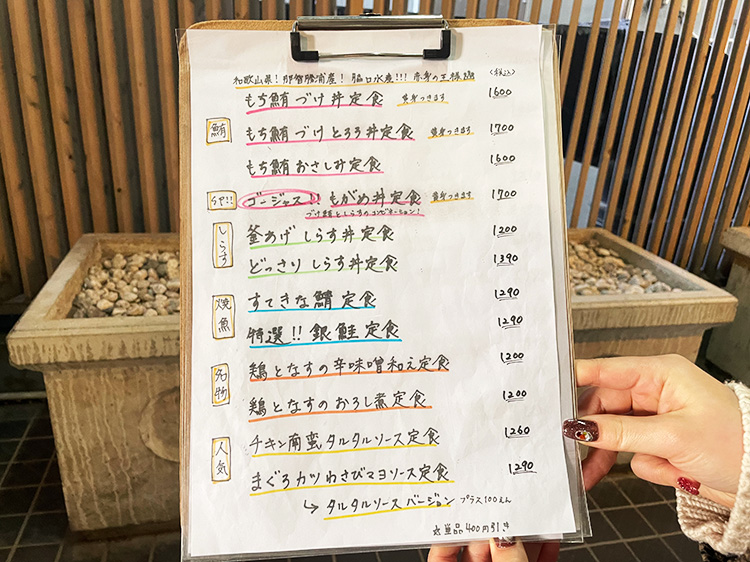 和歌山県!那智勝浦産!脇口水産!!!赤身の王様鮪 (税込)
もち鮪 づけ丼定食 黄身つきます 1600
鮪 もち鮪 づけ とろろ丼定食 黄身つきます 1700
もち鮪 おさしみ定食 1600
SP!! ゴージャス!! もがめ丼定食 黄身つきます 1700
づけ鮪としらすのコンビネーション!
しらす 釜あげ しらす丼定食 1200
どっさり しらす丼定食 1390
焼魚 すてきな鯖 定食 1290
特選!! 銀鮭 定食 1290
名物 鶏となすの辛味噌和え定食 1200
鶏となすの おろし煮定食 1200
人気 チキン南蛮 タルタルソース定食 1260
まぐろカツ わさびマヨソース定食 1290
↳ タルタルソース バージョン プラス100えん
単品400円引き